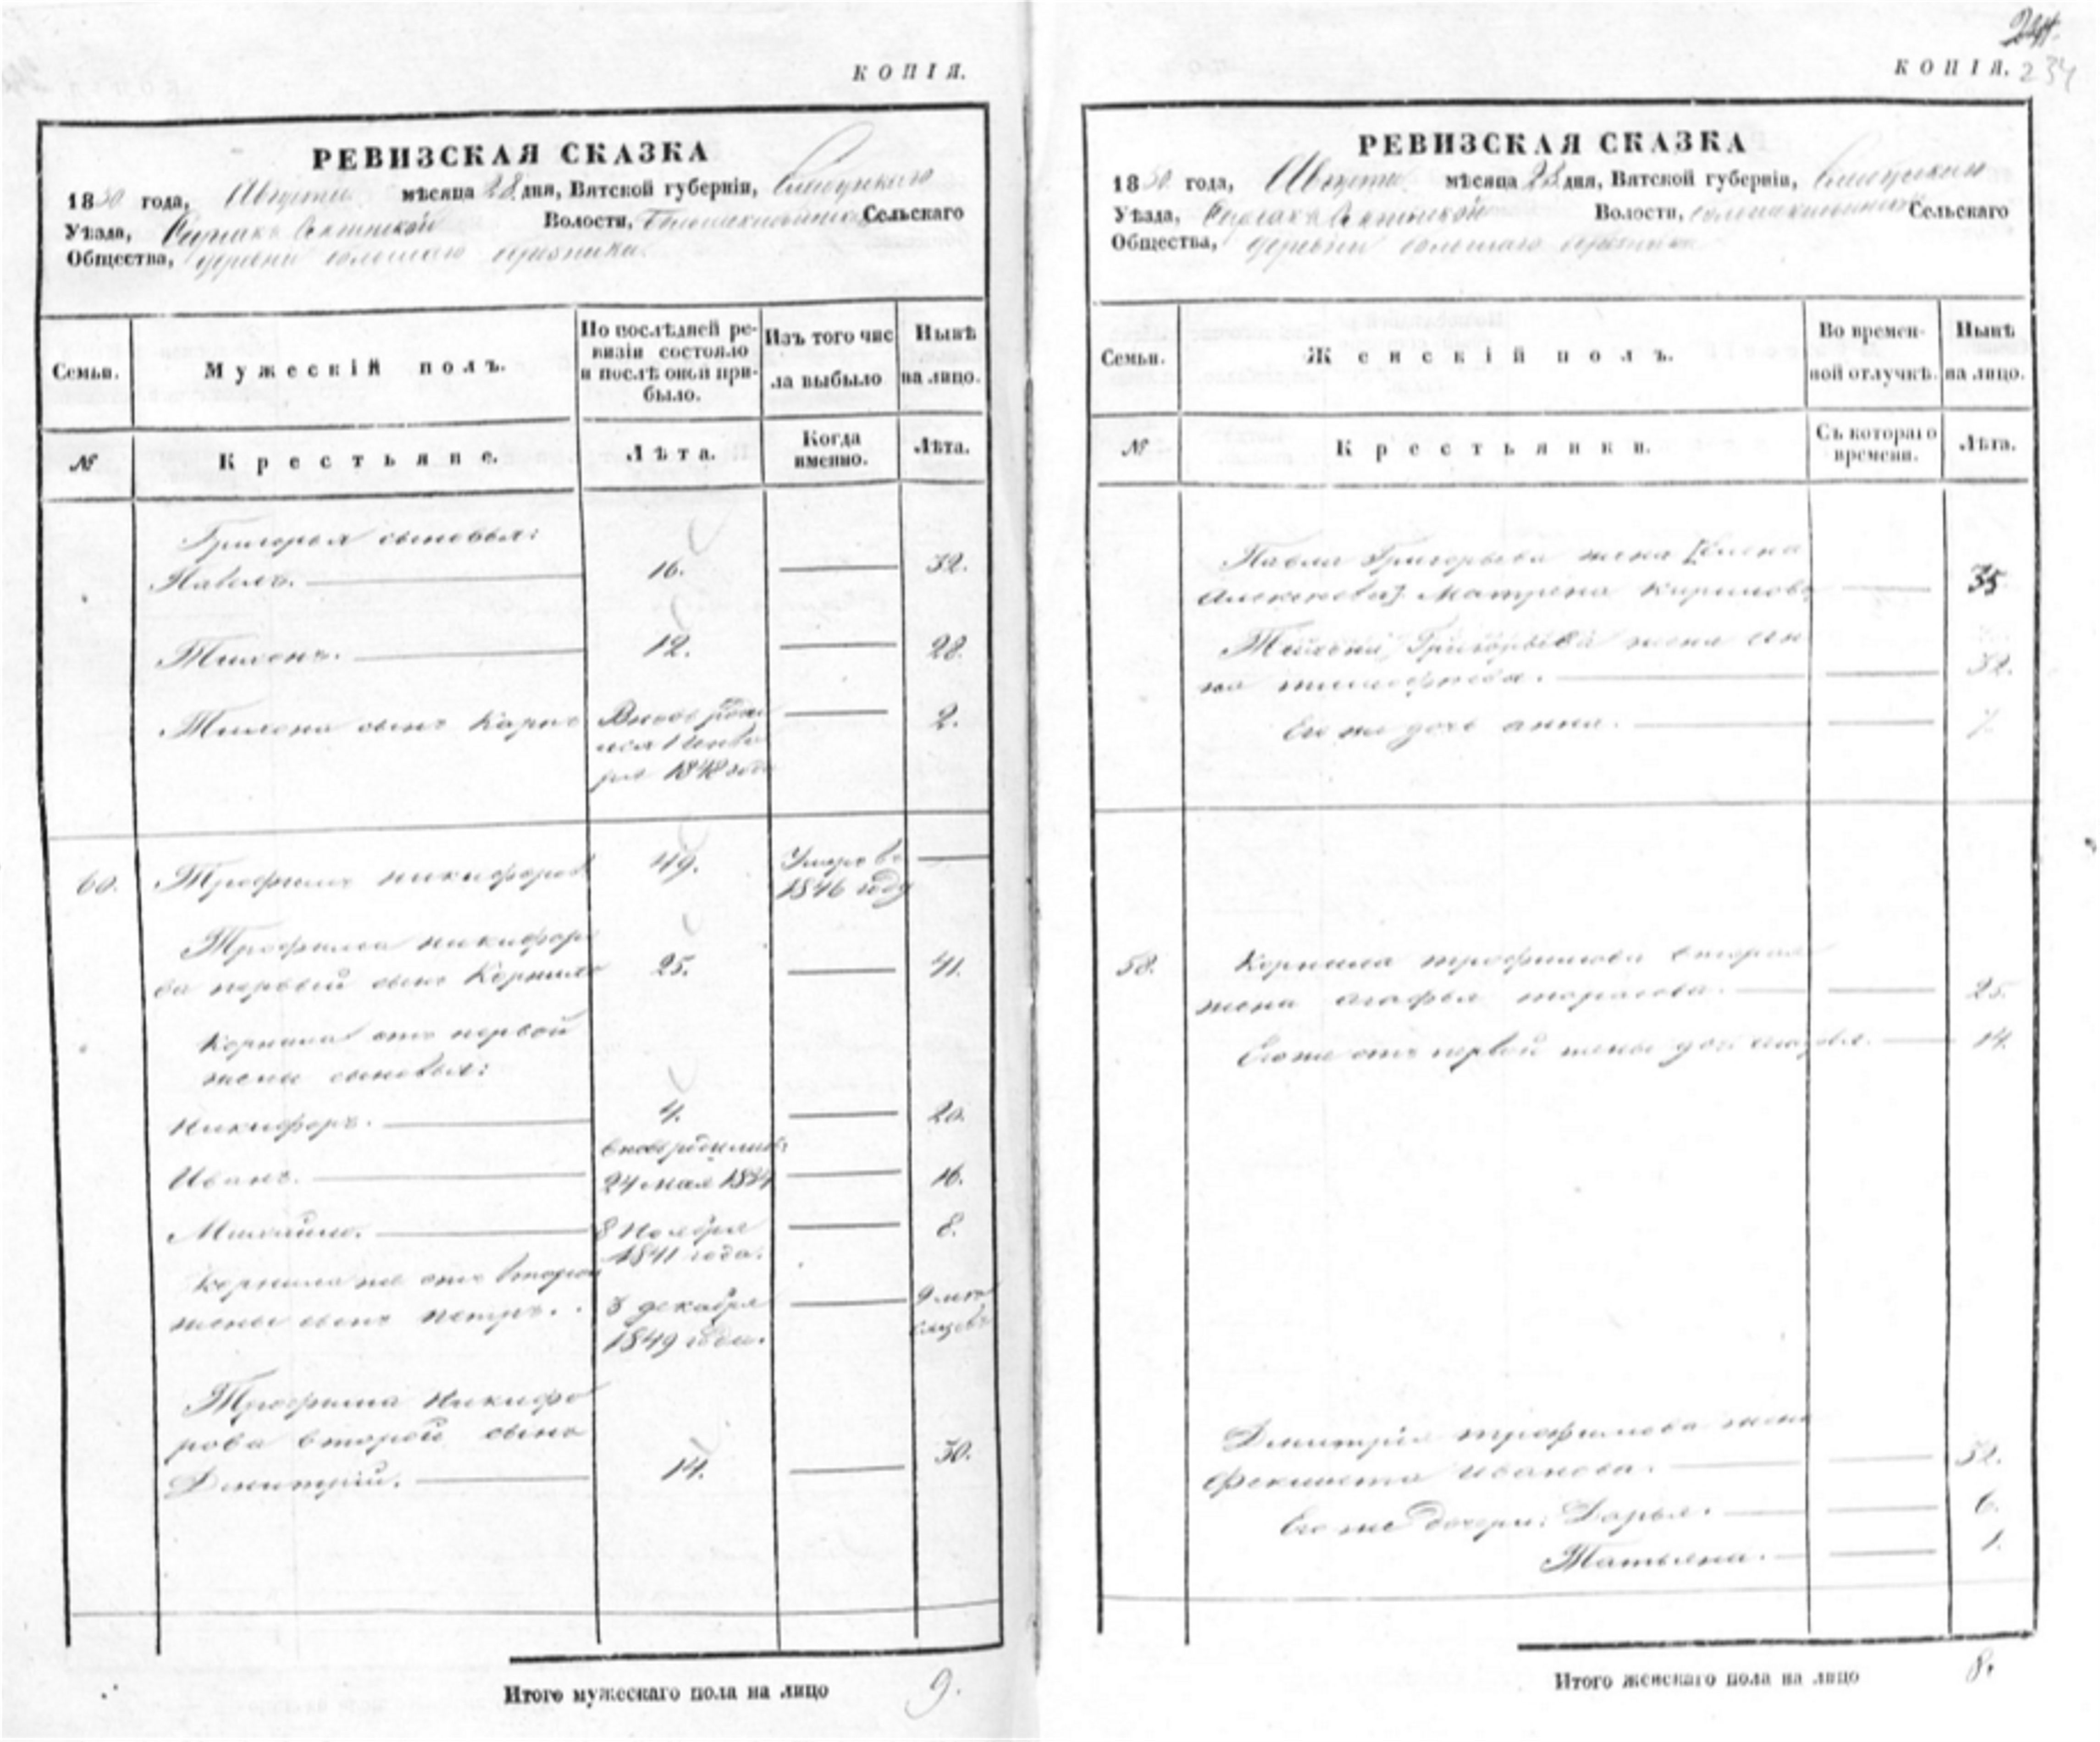 КОПІЯ.
РЕВИЗСКАЯ СКАЗКА
1850 года, Августа мѣсяца 28 дня, Вятской губерніи,
Уѣзда, Волости, Сельскаго
Общества, деревни
Семьи.
Мужескій полъ.
По послѣдней ре-
визіи состояло
и послѣ оной при-
было.
Изъ того чис
ла выбыло
Нынѣ
на лицо.
№
Крестьяне.
Лѣта.
Когда
именно.
Лѣта.
Григорья сыновья:
Павелъ. 16. 32.
Тихонъ. 12. 28.
Тихона сынъ Карпъ Вновь роди
лся Генва 2.
ря 1848 года
60. Трофимъ Никифоровъ 49. Умеръ въ
1846 году
Трофима Никифоро
ва первый сынъ Корнило 25. 41.
Корнила отъ первой
жены сыновья:
Никифоръ. 4. 20.
вновь родились
Иванъ. 24 мая 1834 16.
Михайло. 8 Ноября 8.
1841 года.
Корнила же отъ второй
жены сынъ Петръ. 3 декабря 9 мѣ
1849 года. сяцевъ
Трофима Никифо
рова второй сынъ
Дмитрій. 14. 30.
Итого мужескаго пола на лицо 9.
КОПІЯ. 234
РЕВИЗСКАЯ СКАЗКА
1850 года, Августа мѣсяца 28 дня, Вятской губерніи,
Уѣзда, Волости, Сельскаго
Общества, деревни
Семьи.
Женскій полъ.
Во времен-
ной отлучкѣ.
Нынѣ
на лицо.
№
Крестьянки.
Съ котораго
времени.
Лѣта.
Павла Григорьева жена [Елена
Алексеева] Матрена Кирилова 35.
Тихона Григорьева жена Ан
на 32.
Его же дочь Анна. 7.
58. Корнила Трофимова вторая
жена Агафья Тарасова. 25.
Его же отъ первой жены дочь 14.
Дмитрія Трофимова жена
Феклиста Иванова. 32.
Его же дочери: Дарья. 6.
Татьяна. 1.
Итого женскаго пола на лицо 8.